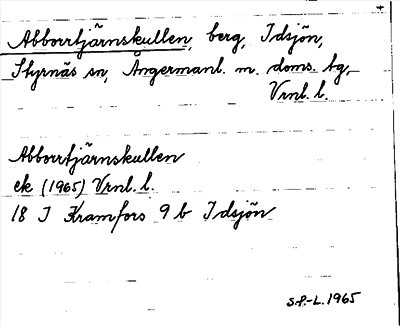 Abborrtjärnskullen, berg, Idsjön,
Styrnäs sn, Ångermanl. m. doms. tg,
Vrnl. l.
Abborrtjärnskullen
ek (1965) Vrnl. l.
18 I Kramfors 9 b Idsjön
S.P.-L. 1965